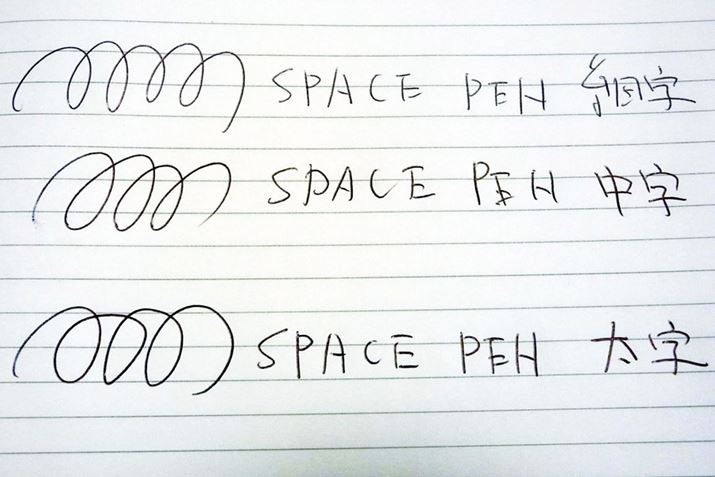 SPACE PEN 細字
SPACE PEN 中字
SPACE PEN 太字